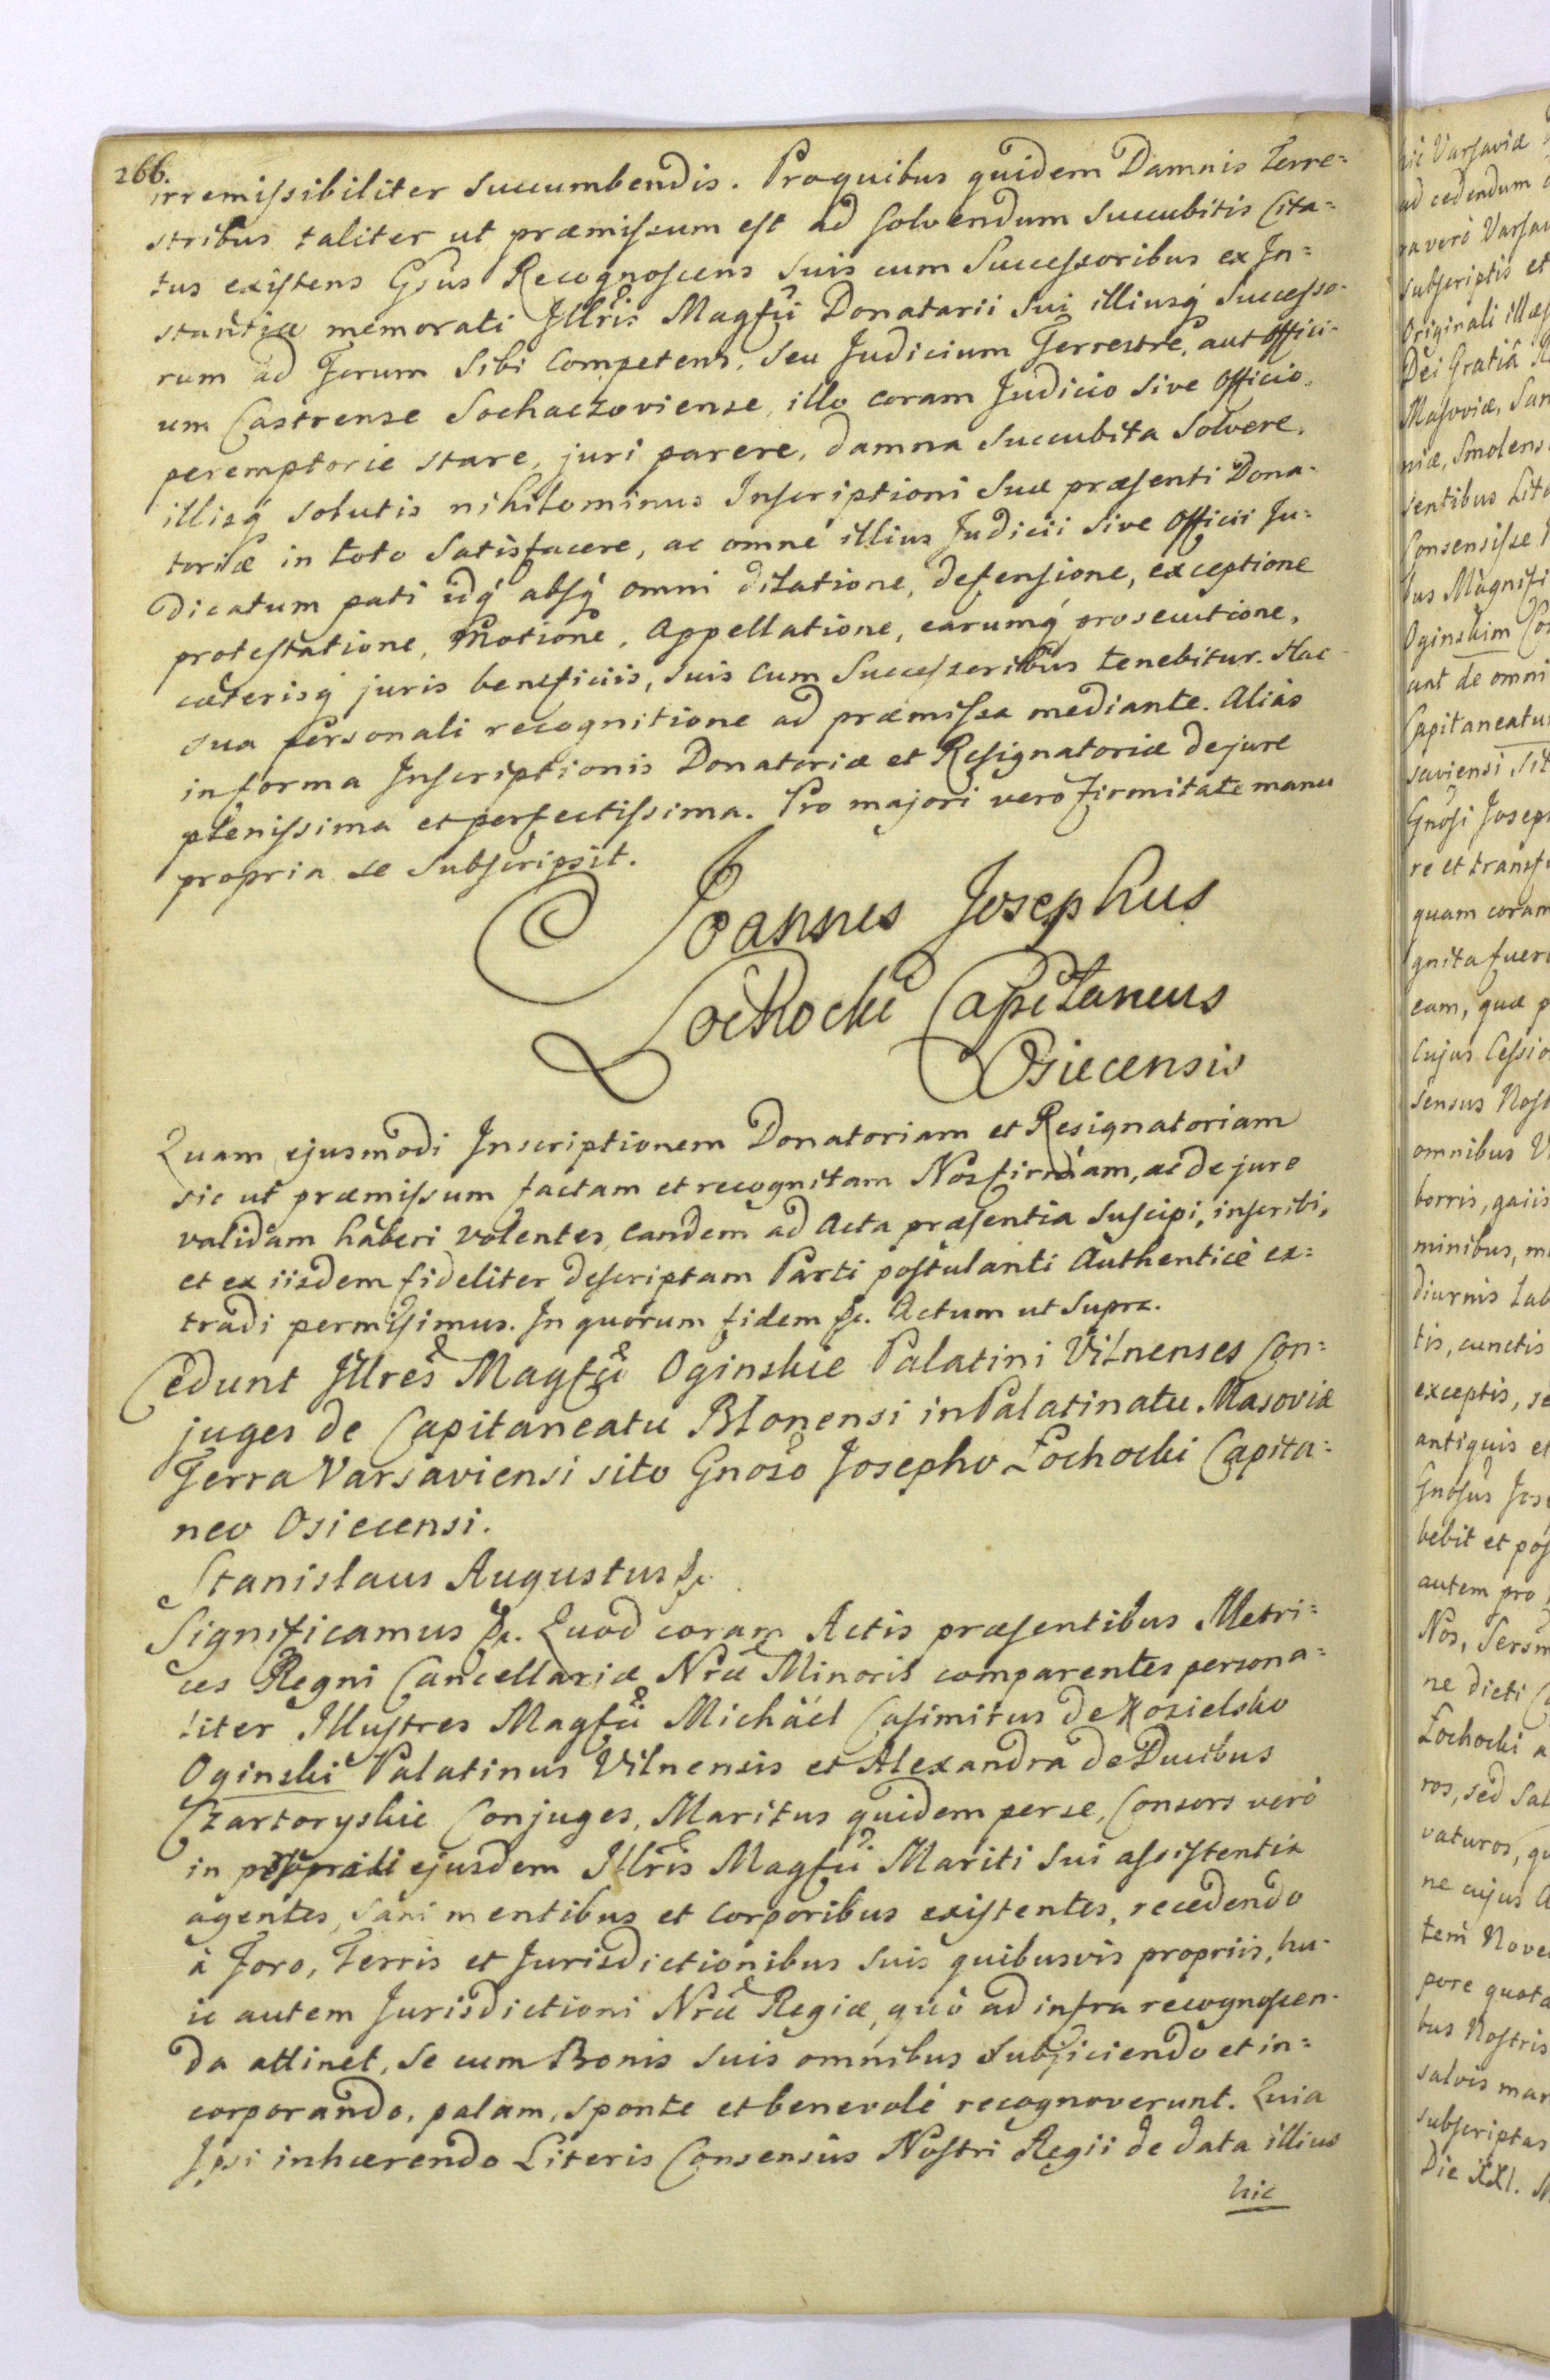 266.
irremissibiliter succumbendis. Pro quibus quidem Damnis terre=
stribus taliter ut præmissum est ad solvendum succubitis Cita=
tus existens Gsus Recognoscens suis cum Successoribus ex In=
stantia memorati Illris Magfci Donatarii sui illiusq́ Successo=
rum ad Forum sibi Competens, seu Judicium Terrestre, aut Offici=
um Castrense Sochaczoviense, illo coram Judicio sive Officio,
peremptorie stare, juri parere, damna succubita solvere,
illisq́ solutis nihilominus Inscriptioni suæ præsenti Dona=
toriæ in toto satisfacere, ac omne illius Judicii sive Officii Ju=
dicatum pati idq́ absq́ omni dilatione, defensione, exceptione
protestatione, Motione, Appellatione, earumq́ prosecutione,
cæterisq́ juris beneficiis, suis cum Successoribus tenebitur. Hac
sua personali recognitione ad præmissa mediante. Alias
in forma Inscriptionis Donatoriæ et Resignatoriæ de jure
plenissima et perfectissima. Pro majori vero firmitate manu
propria se subscripsit.
Joannes Josephus
Łochocki Capitaneus
Osiecensis
Quam ejusmodi Inscriptionem Donatoriam et Resignatoriam
sic ut præmissum factam et recognitam Nos firmam, ac de jure
validam haberi volentes, eandem ad Acta præsentia suscipi, inscribi,
et ex iisdem fideliter descriptam Parti postulanti Authenticè ex=
tradi permisimus. In quorum fidem &c. Actum ut supra.
Cedunt Illres Magfci Oginskie Palatini Vilnenses Con=
juges de Capitaneatu Blonensi in Palatinatu Masoviæ
Terra Varsaviensi sito Gnoso Josepho Łochocki Capita=
neo Osiecensi.
Stanislaus Augustus &c.
Significamus &c. Quod coram Actis præsentibus Metri=
ces Regni Cancellariæ Nræ Minoris comparentes persona=
liter Illustres Magfci Michäel Casimirus de Kozielsko
Oginski Palatinus Vilnensis et Alexandra de Ducibus
Czartoryskie Conjuges, Maritus quidem per se, Consors verò
in ejusdem Illris Magfci Mariti sui assistentia
agentes, sani mentibus et corporibus existentes, recedendo
à Foro, Terris et Jurisdictionibus suis quibusvis propriis, hu=
ic autem Jurisdictioni Nræ Regiæ, quò ad infra recognoscen=
da attinet, se cum Bonis suis omnibus subjiciendo et in=
corporando, palam, sponte et benevolè recognoverunt. Quia
Ipsi inhærendo Literis Consensûs Nostri Regii de data illius
hic
hic Varsaviæ
ad cedendum
ra verò Varsav
subscriptis et
Originali illæs
Dei Gratiâ R
Masoviæ, Sam
niæ, Smolens
sentibus Lite
Consensisse
bus Magnifi
Oginskim Con
unt de omni
Capitaneatu
saviensi, sit
Gnosi Joseph
re et transf
quam coram
gnita fuer
eam, quæ p
Cujus Cessio
sensus Nost
omnibus
borris, gaiis
minibus, m
diurnis Lab
tis, cunctis
exceptis, se
antiquis et
Gnosus Jos
bebit et pos
autem pro
Nos, Sersm
ne dicti
Łochocki a
ros, sed sal
vaturos, qu
ne cujus
tem Nove
pore quota
bus Nostris
salvis man
subscriptas
Die XXI. M